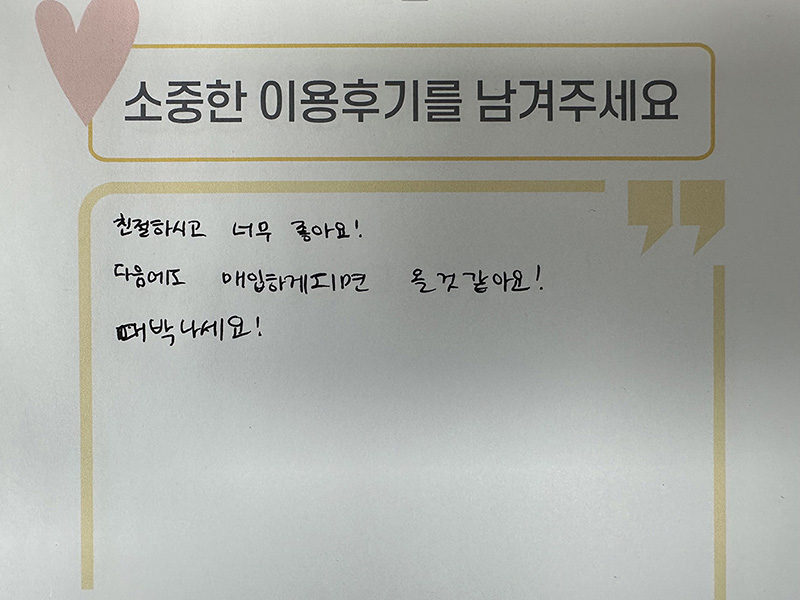 소중한 이용후기를 남겨주세요
친절하시고 너무 좋아요!
다음에도 매입하게되면 올것같아요!
대박나세요!